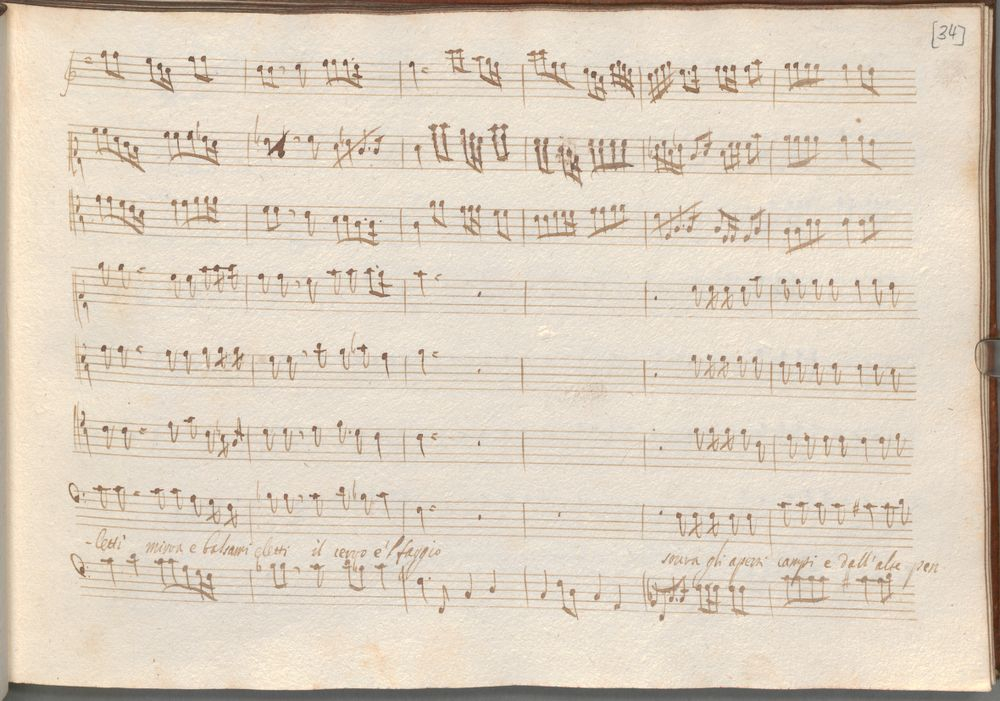 [34]
-letti mirra e balsami eletti il cerro e'l faggio sovra gli aperti campi e dall'alte pen